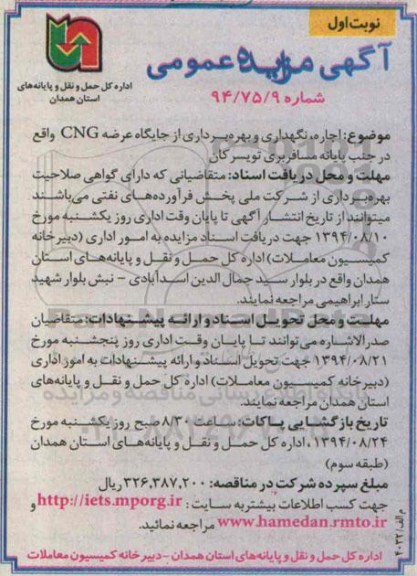 نوبت اول
آگهی مزایده عمومی
شماره ۹۴/۷۵/۹
اداره کل حمل و نقل و پایانه‌های
استان همدان
موضوع: اجاره، نگهداری و بهره‌برداری از جایگاه عرضه CNG واقع
در جنب پایانه مسافربری تویسرکان
مهلت و محل دریافت اسناد: متقاضیانی که دارای گواهی صلاحیت
بهره‌برداری از شرکت ملی پخش فرآورده‌های نفتی می‌باشند
میتوانند از تاریخ انتشار آگهی تا پایان وقت اداری روز یکشنبه مورخ
۱۳۹۴/۰۸/۱۰ جهت دریافت اسناد مزایده به امور اداری (دبیرخانه
کمیسیون معاملات) اداره کل حمل و نقل و پایانه‌های استان
همدان واقع در بلوار سید جمال الدین اسدآبادی - نبش بلوار شهید
ستار ابراهیمی مراجعه نمایند.
مهلت و محل تحویل اسناد و ارائه پیشنهادات: متقاضیان
صدرالاشاره می‌توانند تا پایان وقت اداری روز پنجشنبه مورخ
۱۳۹۴/۰۸/۲۱ جهت تحویل اسناد و ارائه پیشنهادات به امور اداری
(دبیرخانه کمیسیون معاملات) اداره کل حمل و نقل و پایانه‌های
استان همدان مراجعه نمایند.
تاریخ بازگشایی پاکات: ساعت ۸/۳۰ صبح روز یکشنبه مورخ
۱۳۹۴/۰۸/۲۴، اداره کل حمل و نقل و پایانه‌های استان همدان
(طبقه سوم)
مبلغ سپرده شرکت در مناقصه: ۳۲۶,۳۸۷,۲۰۰ ریال
جهت کسب اطلاعات بیشتر به سایت: http://iets.mporg.ir و
www.hamedan.rmto.ir مراجعه نمائید.
اداره کل حمل و نقل و پایانه‌های استان همدان - دبیرخانه کمیسیون معاملات